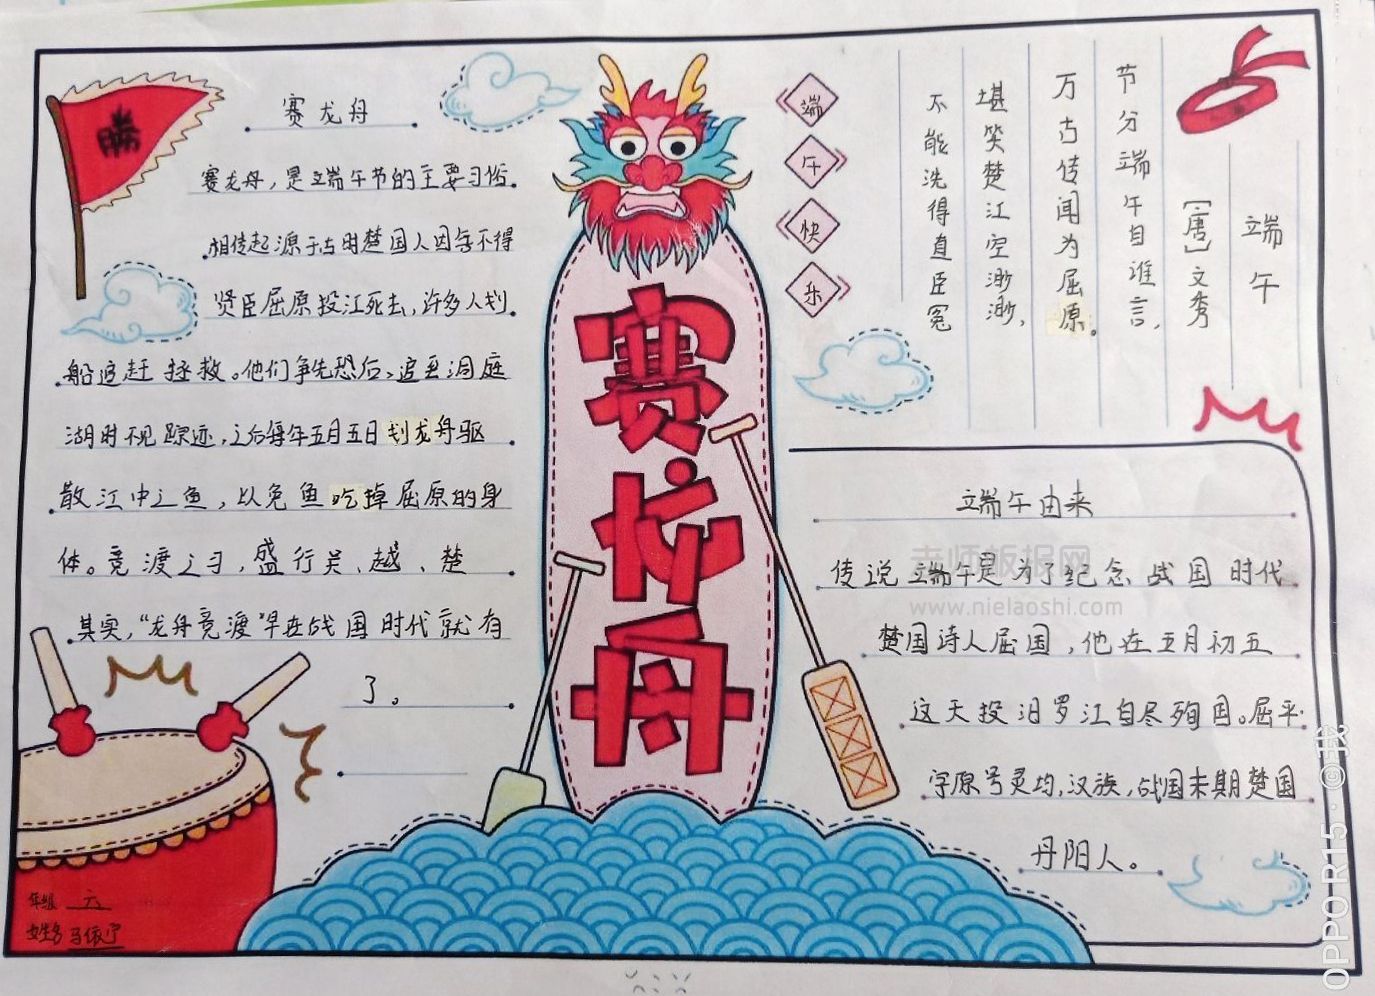 勝
赛龙舟
赛龙舟，是端午节的主要习俗。
相传起源于古时楚国人因舍不得
贤臣屈原投江死去，许多人划
船追赶拯救。他们争先恐后，追至洞庭
湖时不见踪迹，之后每年五月五日划龙舟驱
散江中之鱼，以免鱼吃掉屈原的身
体。竞渡之习，盛行吴、越、楚
其实，“龙舟竞渡”早在战国时代就有
了。
年级 六
姓名
赛龙舟
端午快乐
端午
[唐]文秀
节分端午自谁言，
万古传闻为屈原。
堪笑楚江空渺渺，
不能洗得直臣冤
端午由来
传说端午是为了纪念战国时代
楚国诗人屈国，他在五月初五
这天投汨罗江自尽殉国。屈平
字原号灵均，汉族，战国末期楚国
丹阳人。
老师板报网
www.nielaoshi.com
OPPO R15 · ©我